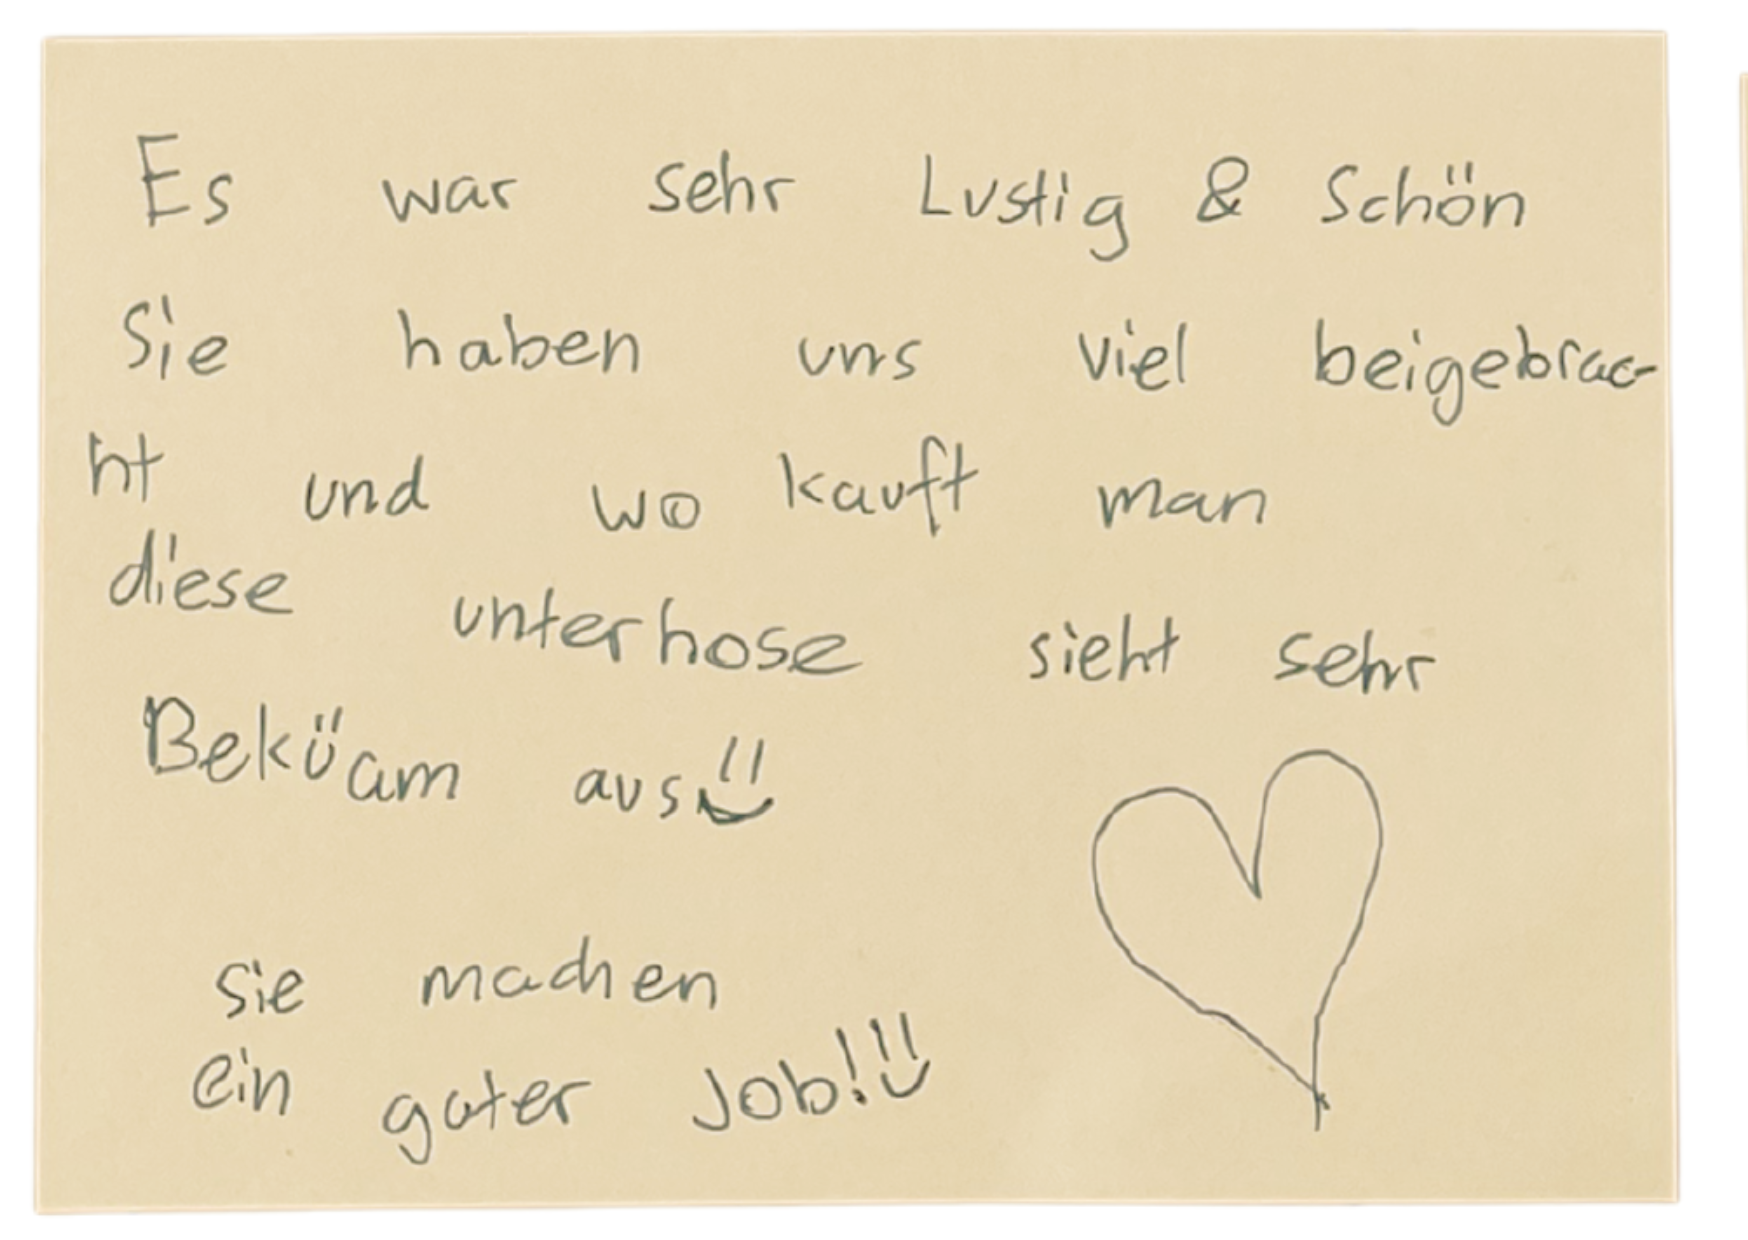 Es war sehr Lustig & Schön
Sie haben uns viel beigebrac-
ht und wo kauft man
diese unterhose sieht sehr
Beküam aus
sie machen
ein guter Job!